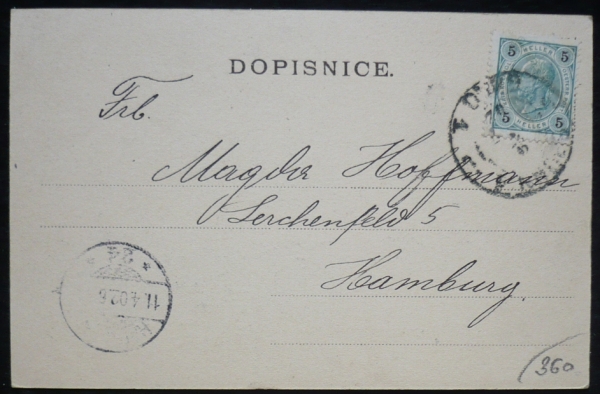 DOPISNICE.
5 HELLER 5
5 HELLER 5
Frl.
Magda Hoffmann
Lerchenfeld 5
Hamburg.
11.4.02.
360